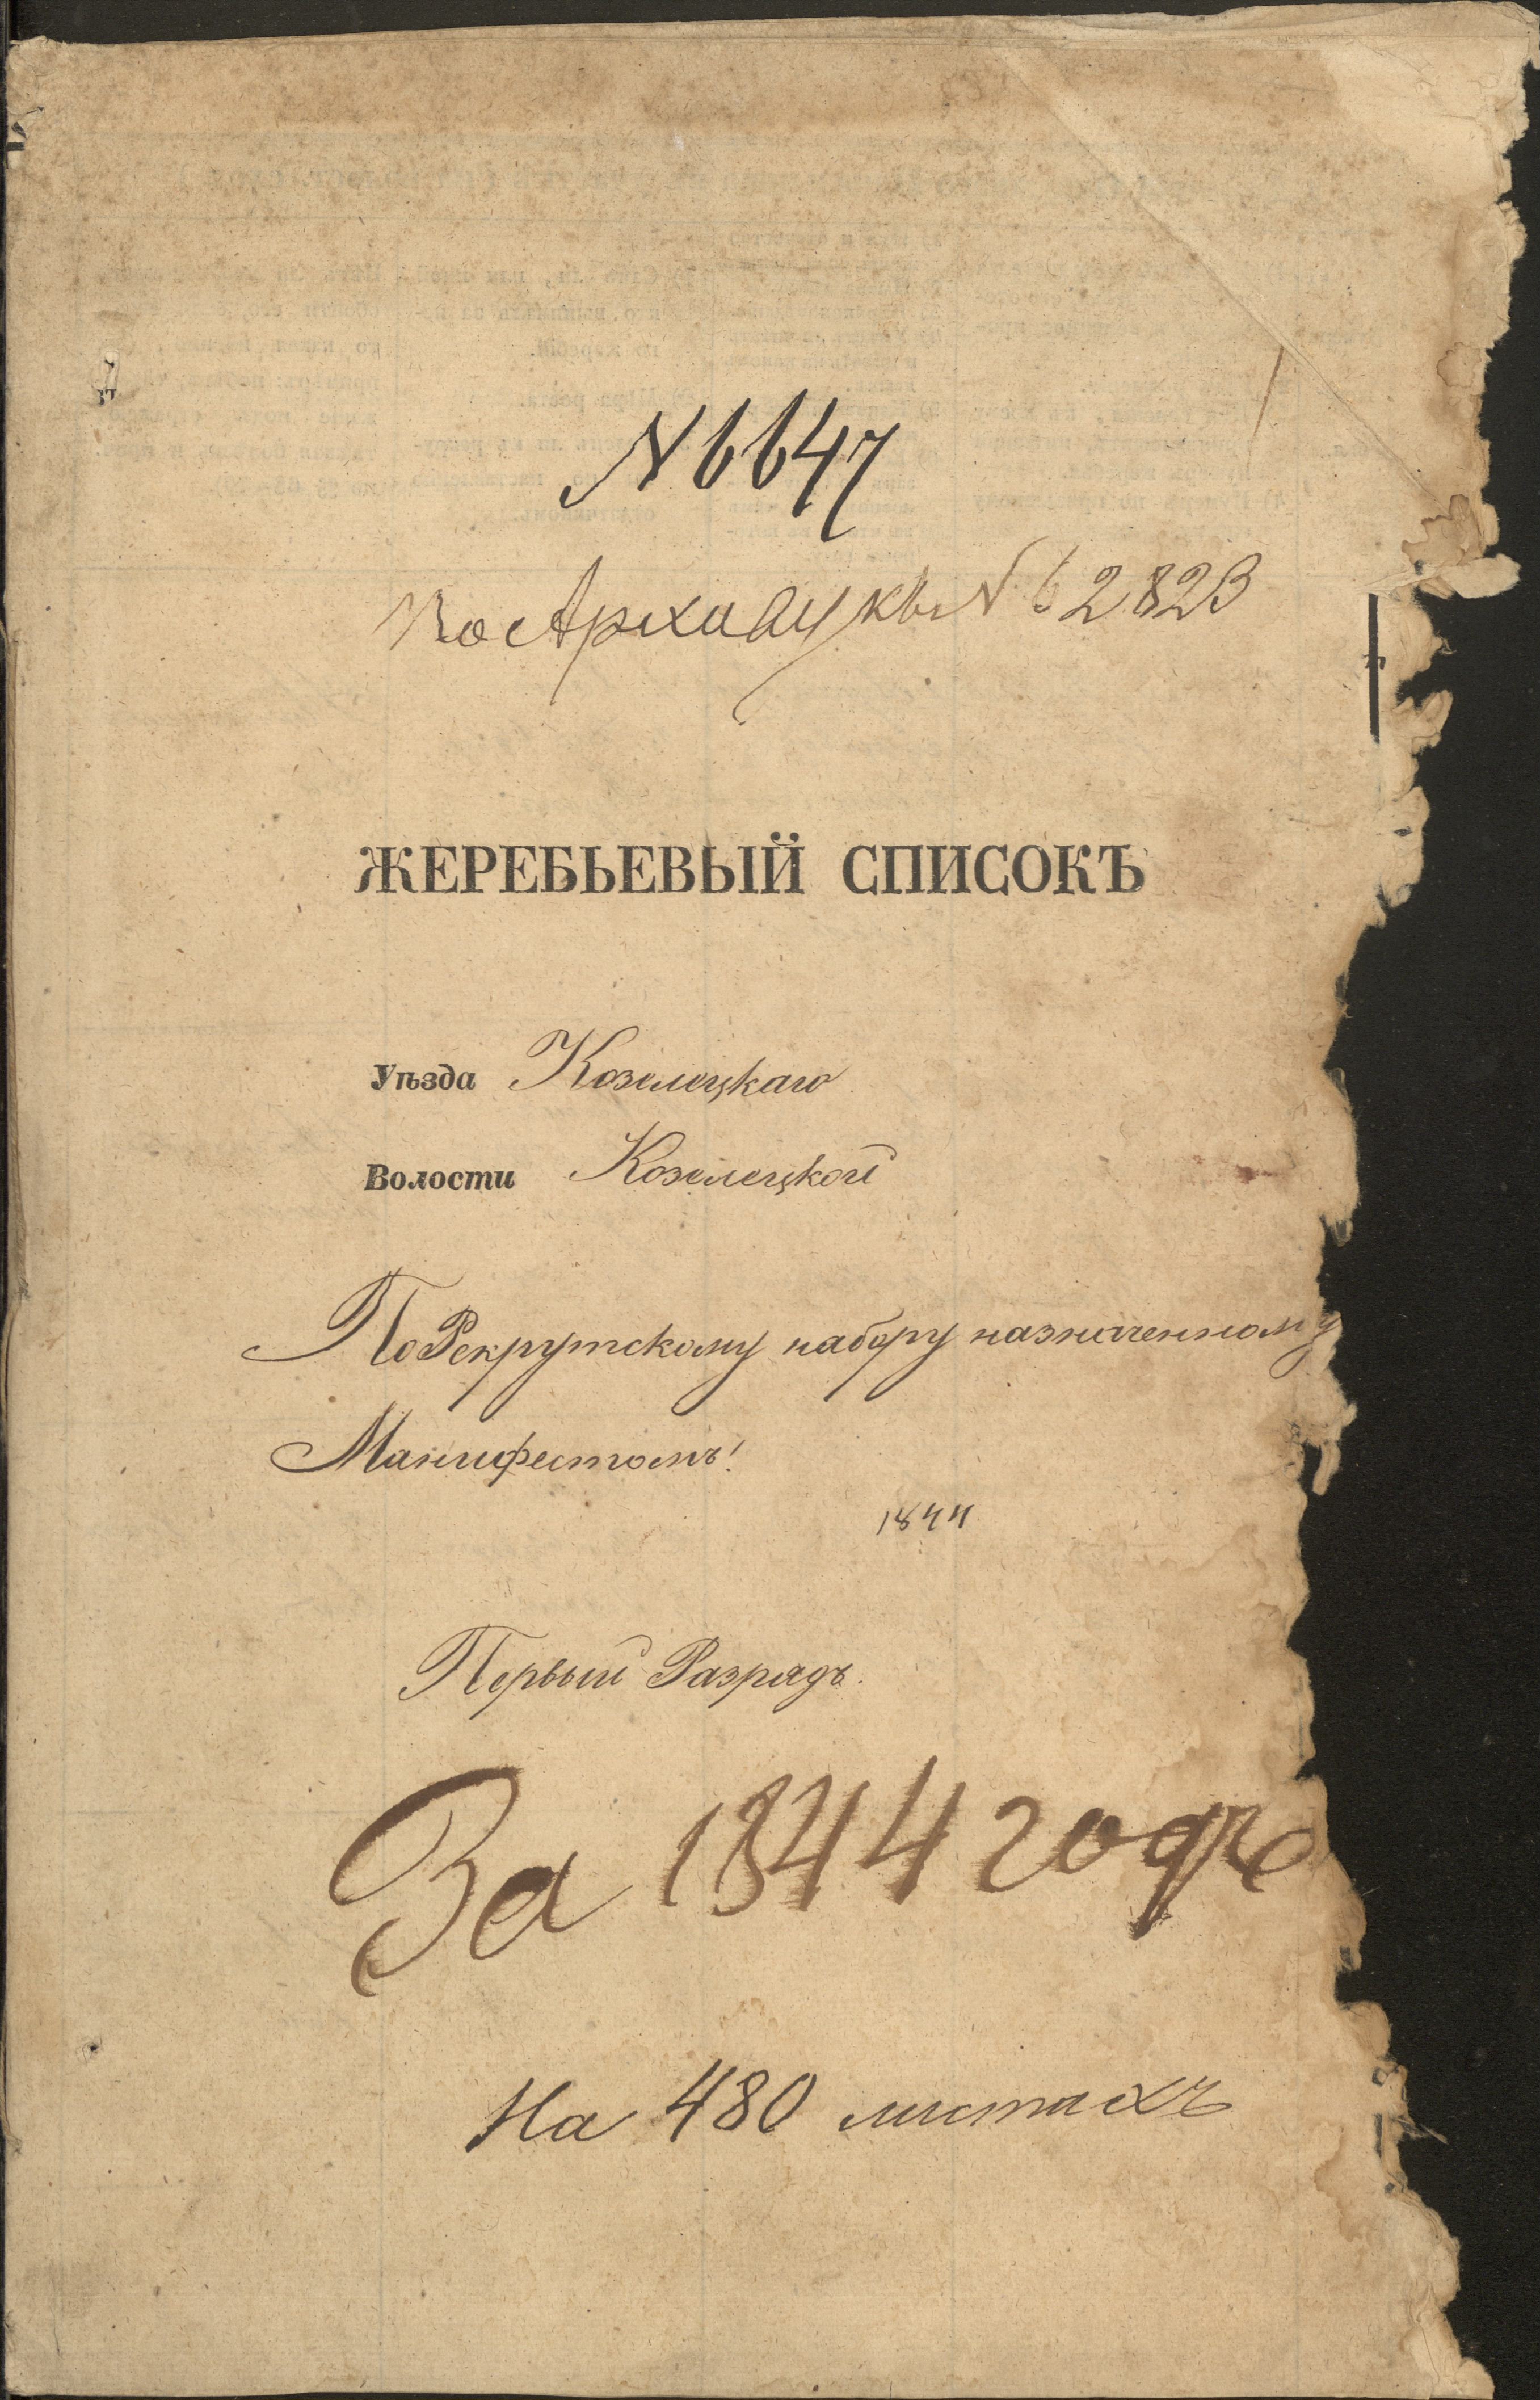 № 6647
По Архиву къ № 62823
ЖЕРЕБЬЕВЫЙ СПИСОКЪ
Уѣзда Козелецкаго
Волости Козелецкой
По Рекрутскому набору назначенному
Манифестомъ
1844
Первый Разрядъ.
За 1844 годъ
На 480 листахъ